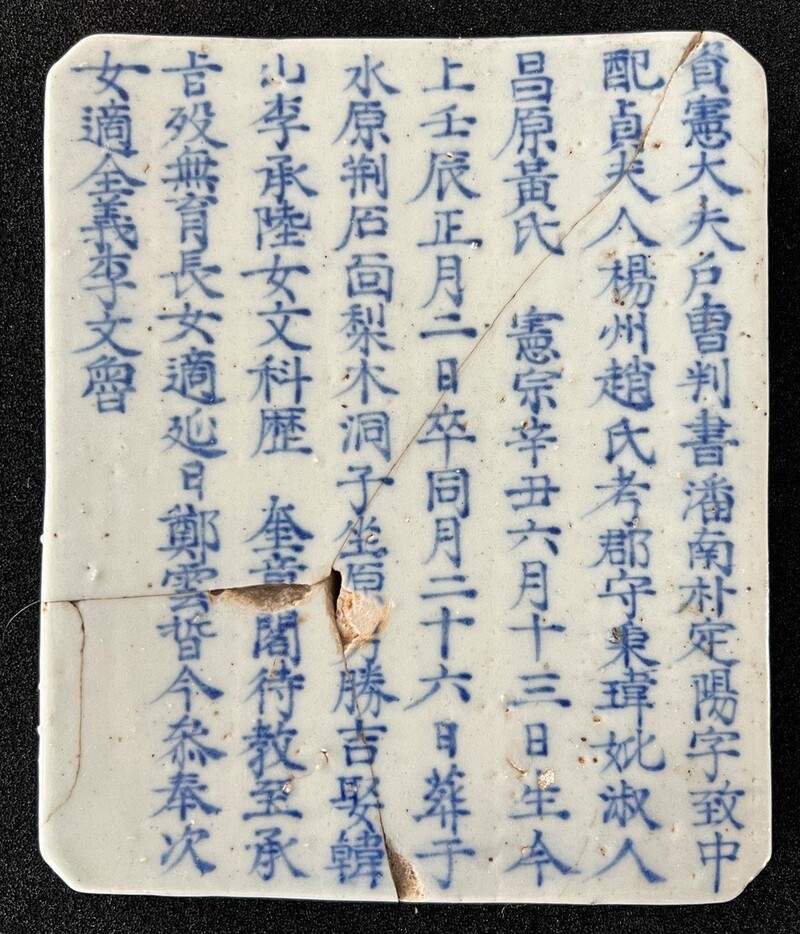 資憲大夫戶曺判書潘南朴定陽字致中
配貞夫人楊州趙氏考郡守秉瑋妣淑人
昌原黃氏　憲宗辛丑六月十三日生今
上壬辰正月二日卒同月二十六日葬于
水原荆石面梨木洞子坐原勝吉娶韓
山李承陸女文科歷　奎章閣待教至承
㫖歿無育長女適延日鄭雲晳今叅奉次
女適全義李文